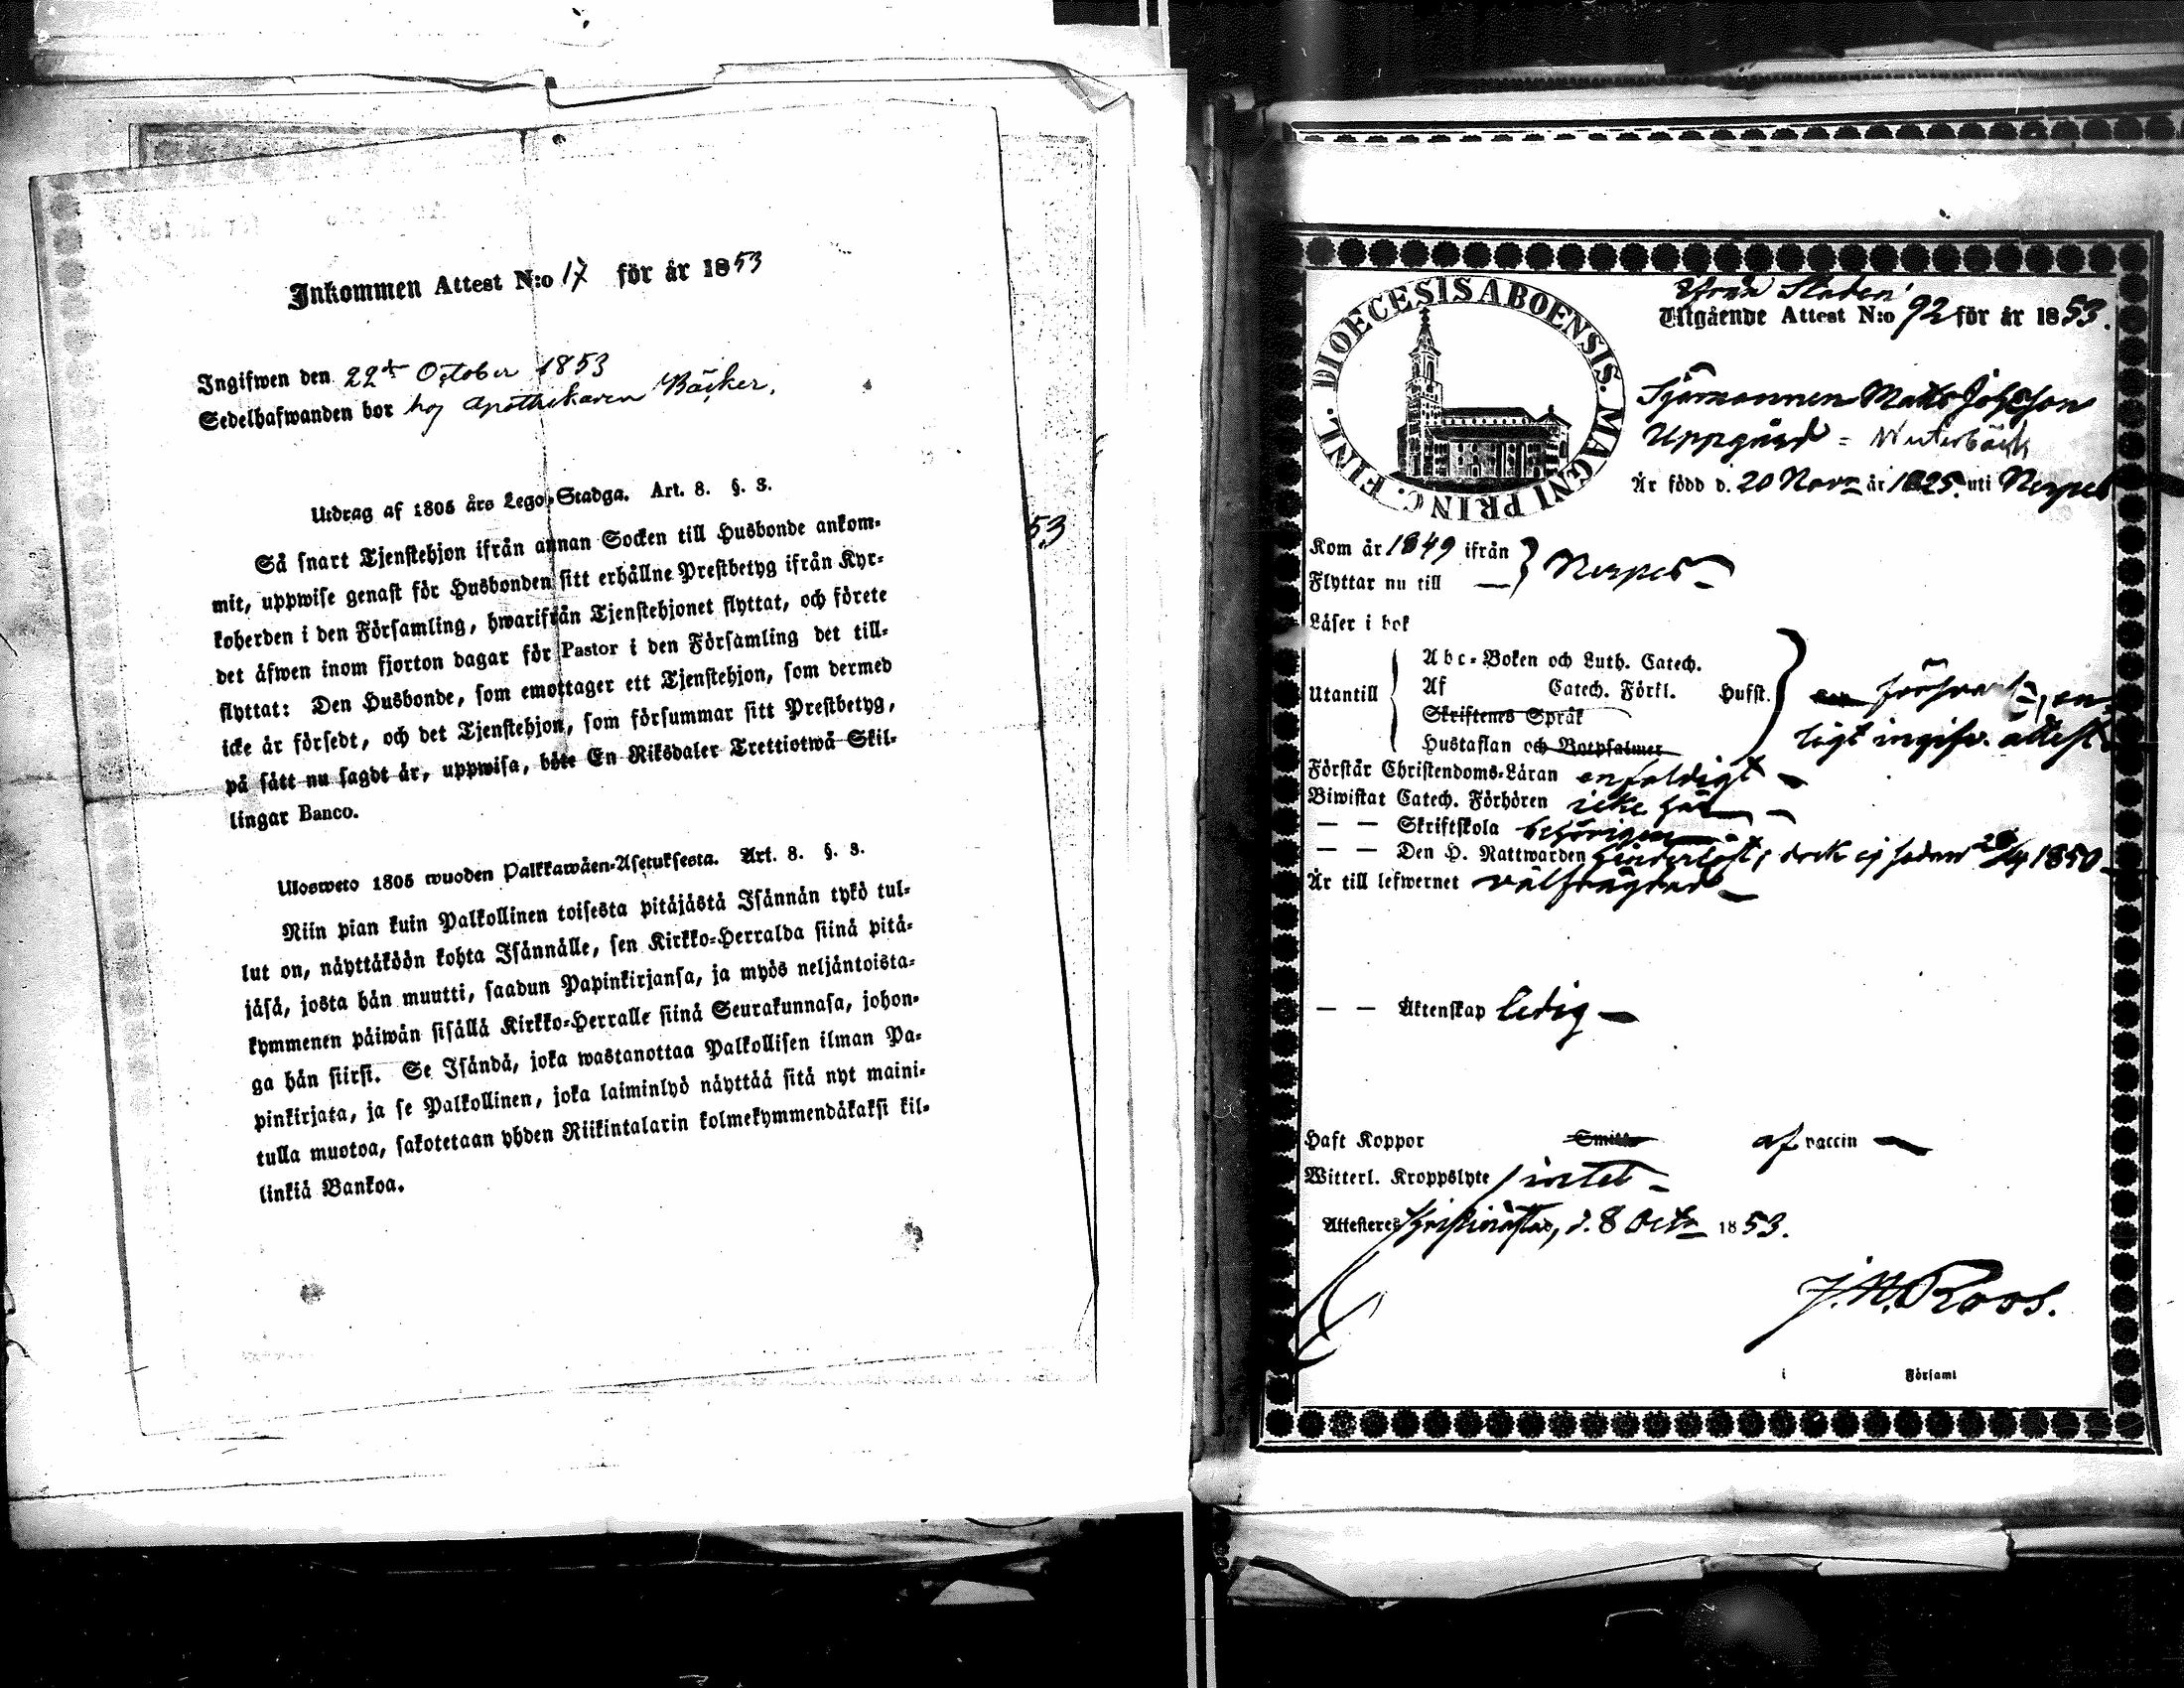 Inkommen Attest N:o 17 för år 1853
Ingifwen den 22dr October 1853
Sedelhafwanden bor hos Apothekaren Bäcker.
Utdrag af 1805 års Lego-Stadga. Art. 8. §. 3.
Så snart Tjenstehjon ifrån annan Socken till Husbonde ankom-
mit, uppwise genast för Husbonden sitt erhållne Prestbetyg ifrån Kyr-
koherden i den Församling, hwarifrån Tjenstehjonet flyttat, och förete
det åfwen inom fjorton dagar för Pastor i den Församling det till-
flyttat: Den Husbonde, som emottager ett Tjenstehjon, som dermed
icke är försedt, och det Tjenstehjon, som försummar sitt Prestbetyg,
på sätt nu sagdt är, uppwisa, böte En Riksdaler Trettiotwå Skil-
lingar Banco.
Ulosweto 1805 wuoden Palkkawäen-Asetuksesta. Art. 8. §. 3.
Niin pian kuin Palkollinen toisesta pitäjästä Isännän tykö tul-
lut on, näyttäköön kohta Isännälle, sen Kirkko-Herralda siinä pitä-
jäsä, josta hän muutti, saadun Papinkirjansa, ja myös neljäntoista-
kymmenen päiwän sisällä Kirkko-Herralle siinä Seurakunnasa, johon-
ga hän siirsi. Se Isändä, joka wastanottaa Palkollisen ilman Pa-
pinkirjata, ja se Palkollinen, joka laiminlyö näyttää sitä nyt maini-
tulla muotoa, sakotetaan yhden Riikintalarin kolmekymmendäkaksi kil-
linkiä Bankoa.
53
DIOECESIS ABOENSIS. MAGNI PRINC. FINL.
från Staden
Utgående Attest N:o 92 för år 1853.
Sjömannen Matts Johsson
Uppgård = Winterbäck
Är född d. 20 Novr år 1825. uti Nerpes
Kom år 1849 ifrån
Flyttar nu till — } Nerpes
Läser i bok
Abc-Boken och Luth. Catech.
Utantill Af Catech. Förkl. Husst.
Skriftenes Språk
Hustaflan och Botpsalmer
försvarl., en-
ligt ingifv. attest.
Förstår Christendoms-Läran enfaldigt
Biwistat Catech. Förhören icke här
— — Skriftskola behörigen
— — Den H. Nattwarden hinderlöst; dock ej sedan 1850
Är till lefwernet välfrägdad
— — Äktenskap ledig
Haft Koppor Smitt. af vaccin
Witterl. Kroppslyte intet
Attesteres Christinestad, d. 8 Octr 1853.
J. M. Roos.
i Församl